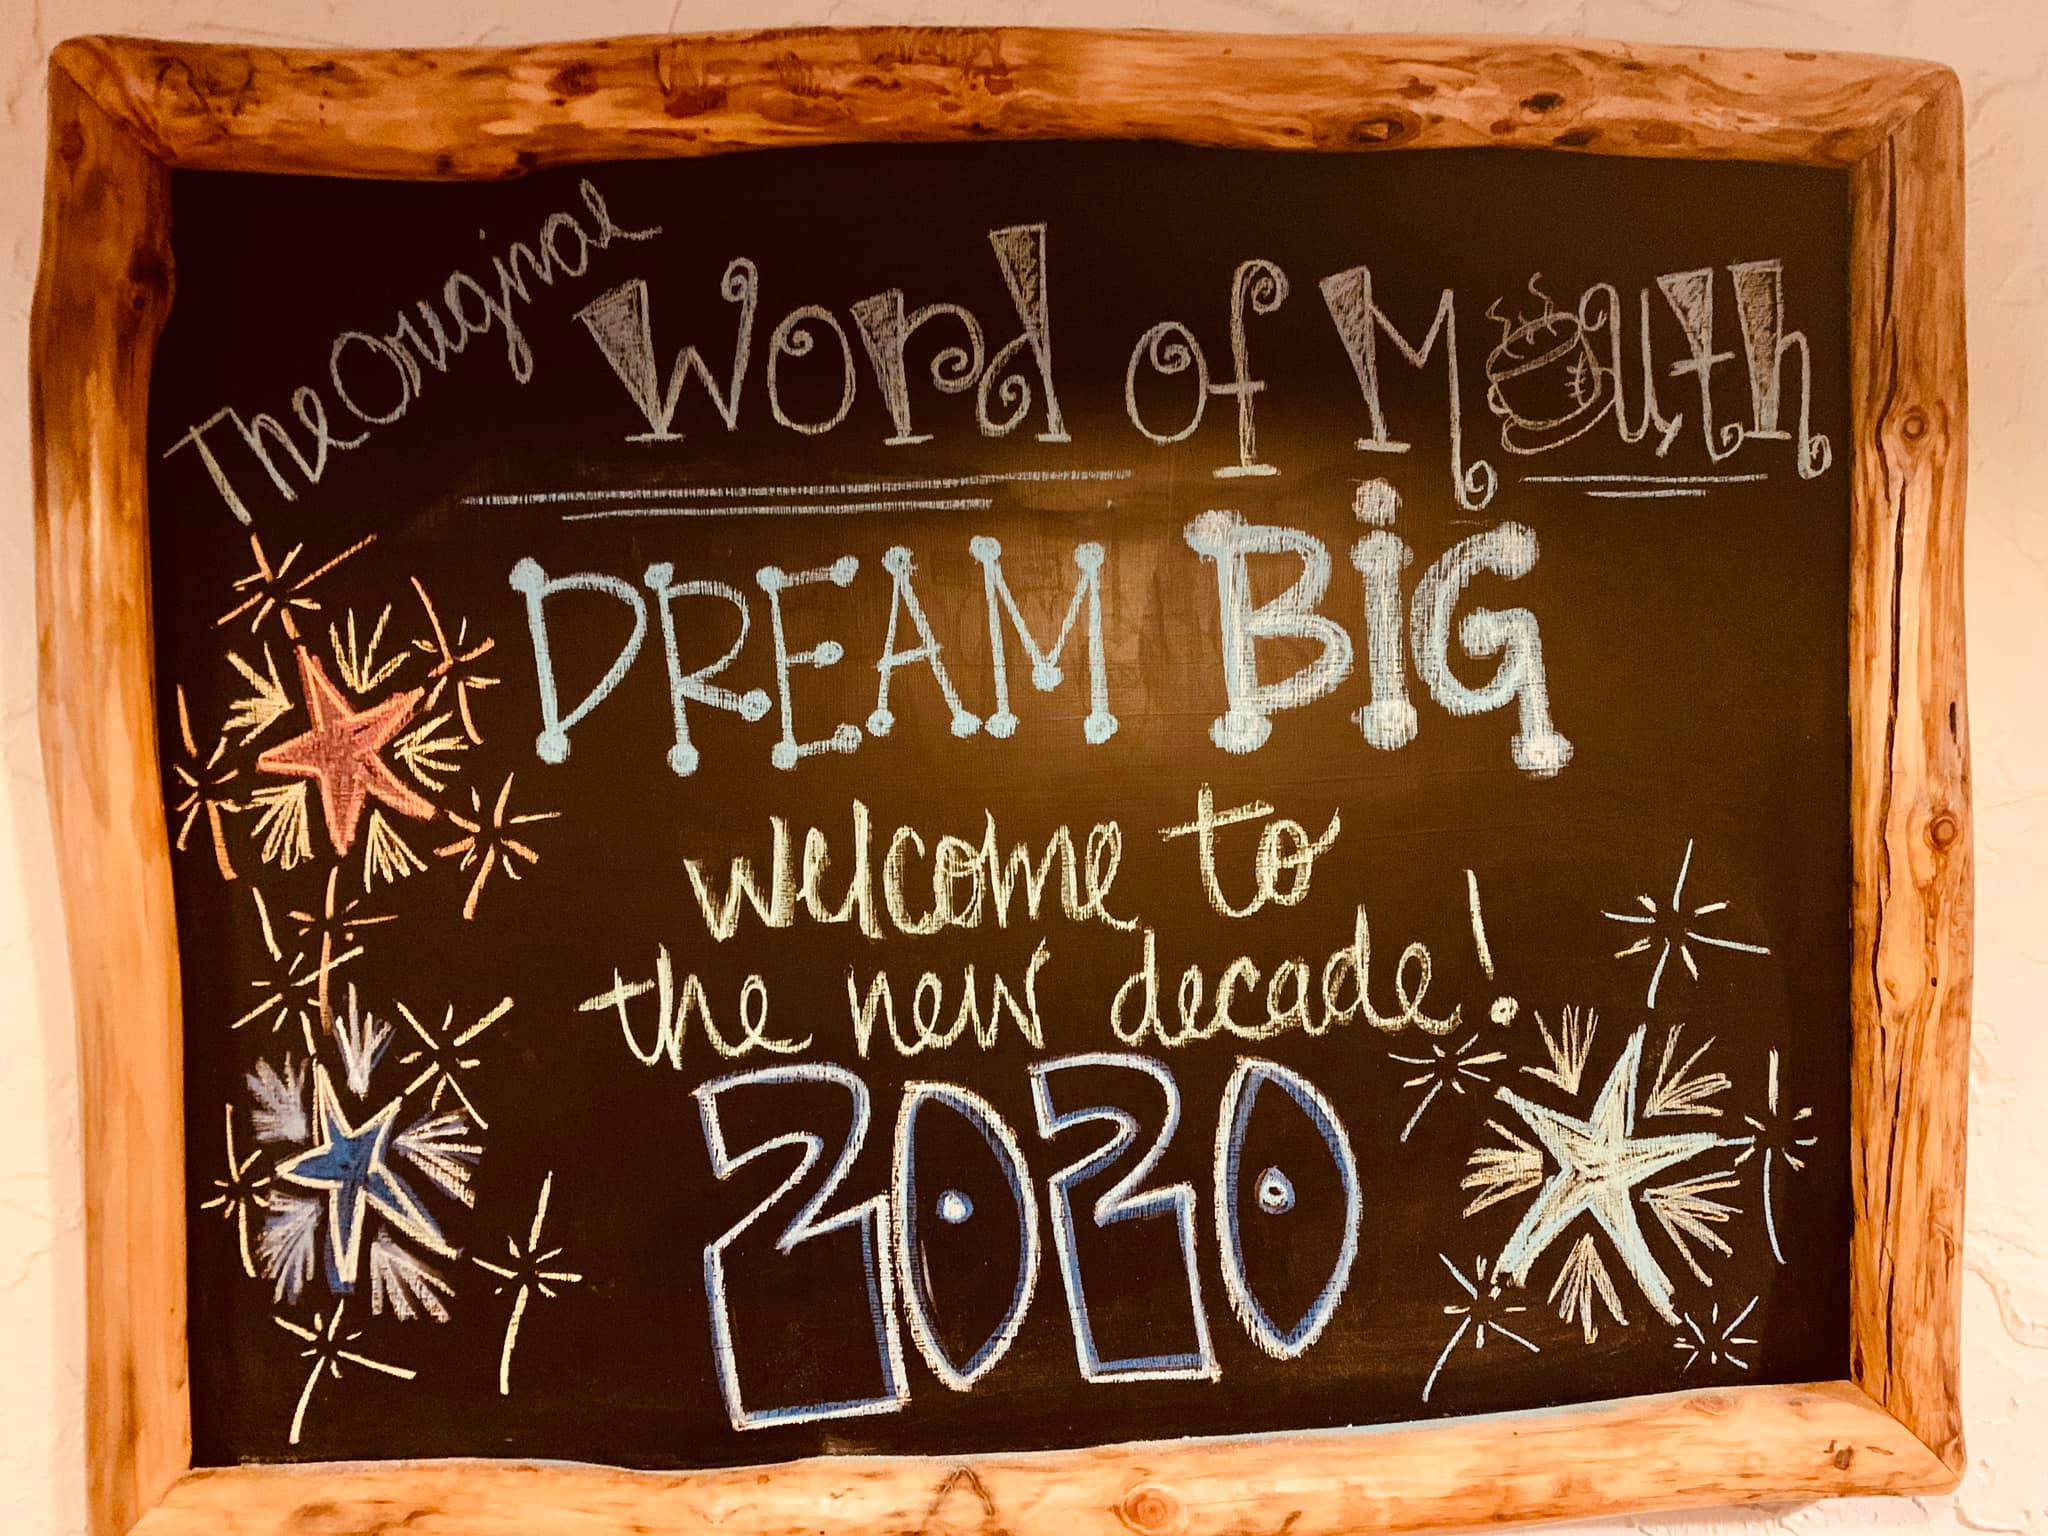 The Original
Word of Mouth
DREAM BiG
welcome to
the new decade!
2020